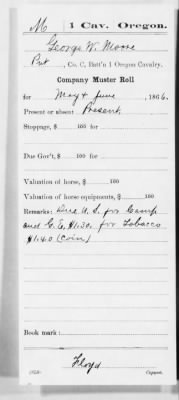 M | 1 Cav. | Oregon.
George W. Moore
Pvt, Co. C, Batt'n 1 Oregon Cavalry.
Company Muster Roll
for May & June, 1866.
Present or absent Present
Stoppage, $ 100 for
Due Gov't, $ 100 for
Valuation of horse, $ 100
Valuation of horse equipments, $ 100
Remarks: Due U.S. for Camp
and G. E. $1.30. for Tobacco
$1.40 (coin)
Book mark:
Floyd
Copyist.